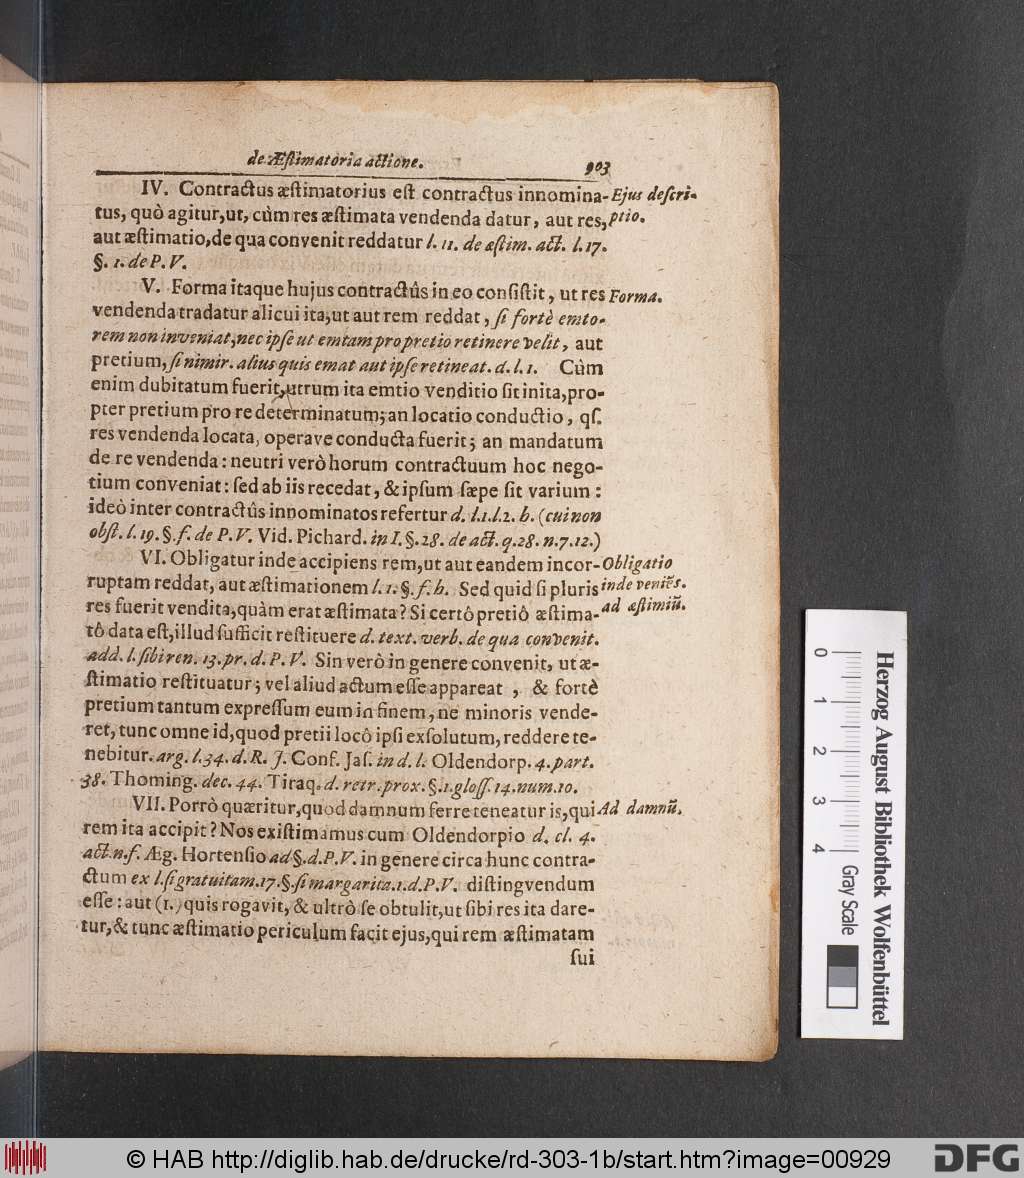 de Æſtimatoria actione. 903
IV. Contractus æſtimatorius eſt contractus innomina- Ejus deſcri-
tus, quò agitur,ut, cùm res æſtimata vendenda datur, aut res, ptio.
aut æſtimatio,de qua convenit reddatur l. 11. de æſtim. act. l. 17.
§. 1. de P. V.
V. Forma itaque hujus contractûs in eo conſiſtit, ut res Forma.
vendenda tradatur alicui ita,ut aut rem reddat, ſi fortè emto-
rem non inveniat, nec ipſe ut emtam pro pretio retinere velit, aut
pretium, ſi nimir. alius quis emat aut ipſe retineat. d. l. 1. Cùm
enim dubitatum fuerit,utrum ita emtio venditio ſit inita,pro-
pter pretium pro re determinatum;an locatio conductio, qſ.
res vendenda locata, operave conducta fuerit; an mandatum
de re vendenda: neutri verò horum contractuum hoc nego-
tium conveniat: ſed ab iis recedat, & ipſum ſæpe ſit varium:
ideò inter contractûs innominatos refertur d. l.1.l.2. h. (cui non
obſt. l. 19. §. f. de P. V. Vid. Pichard. in I. §. 28. de act. q.28. n.7.12.)
VI. Obligatur inde accipiens rem,ut aut eandem incor- Obligatio
ruptam reddat, aut æſtimationem l. 1. §. f. h. Sed quid ſi pluris inde veniẽs.
res fuerit vendita,quàm erat æſtimata? Si certô pretiô æſtima- ad æſtimiũ.
tô data eſt,illud ſufficit reſtituere d. text. verb. de qua convenit.
add. l. ſibi ren. 13. pr. d. P. V. Sin verò in genere convenit, ut æ-
ſtimatio reſtituatur; vel aliud actum eſſe appareat, & fortè
pretium tantum expreſſum eum in finem, ne minoris vende-
ret, tunc omne id,quod pretii locô ipſi exſolutum, reddere te-
nebitur. arg. l. 34. d. R. J. Conf. Jaſ. in d. l. Oldendorp. 4. part.
38. Thoming. dec. 44. Tiraq. d. retr. prox. §.1. gloſſ. 14. num. 10.
VII. Porrò quæritur,quod damnum ferre teneatur is,qui Ad damnũ.
rem ita accipit? Nos exiſtimamus cum Oldendorpio d. cl. 4.
act. n. f. Æg. Hortenſio ad §. d. P. V. in genere circa hunc contra-
ctum ex l. ſi gratuitam. 17. §. ſi margarita. 1. d. P. V. diſtingvendum
eſſe: aut (1.) quis rogavit, & ultrò ſe obtulit,ut ſibi res ita dare-
tur,& tunc æſtimatio periculum facit ejus,qui rem æſtimatam
ſui
0 1 2 3 4
Gray Scale
Herzog August Bibliothek Wolfenbüttel
© HAB http://diglib.hab.de/drucke/rd-303-1b/start.htm?image=00929
DFG